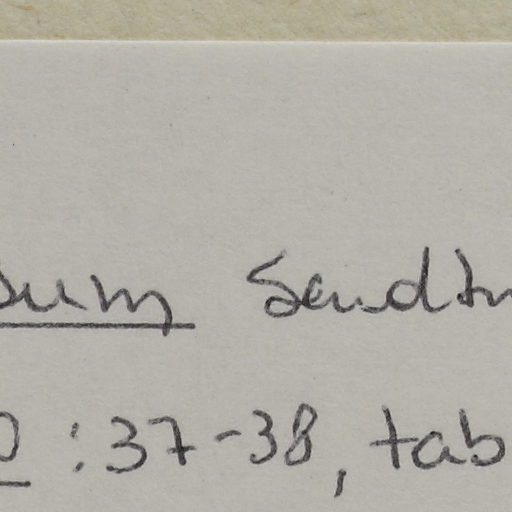 sum Sendtn
0 : 37-38, tab